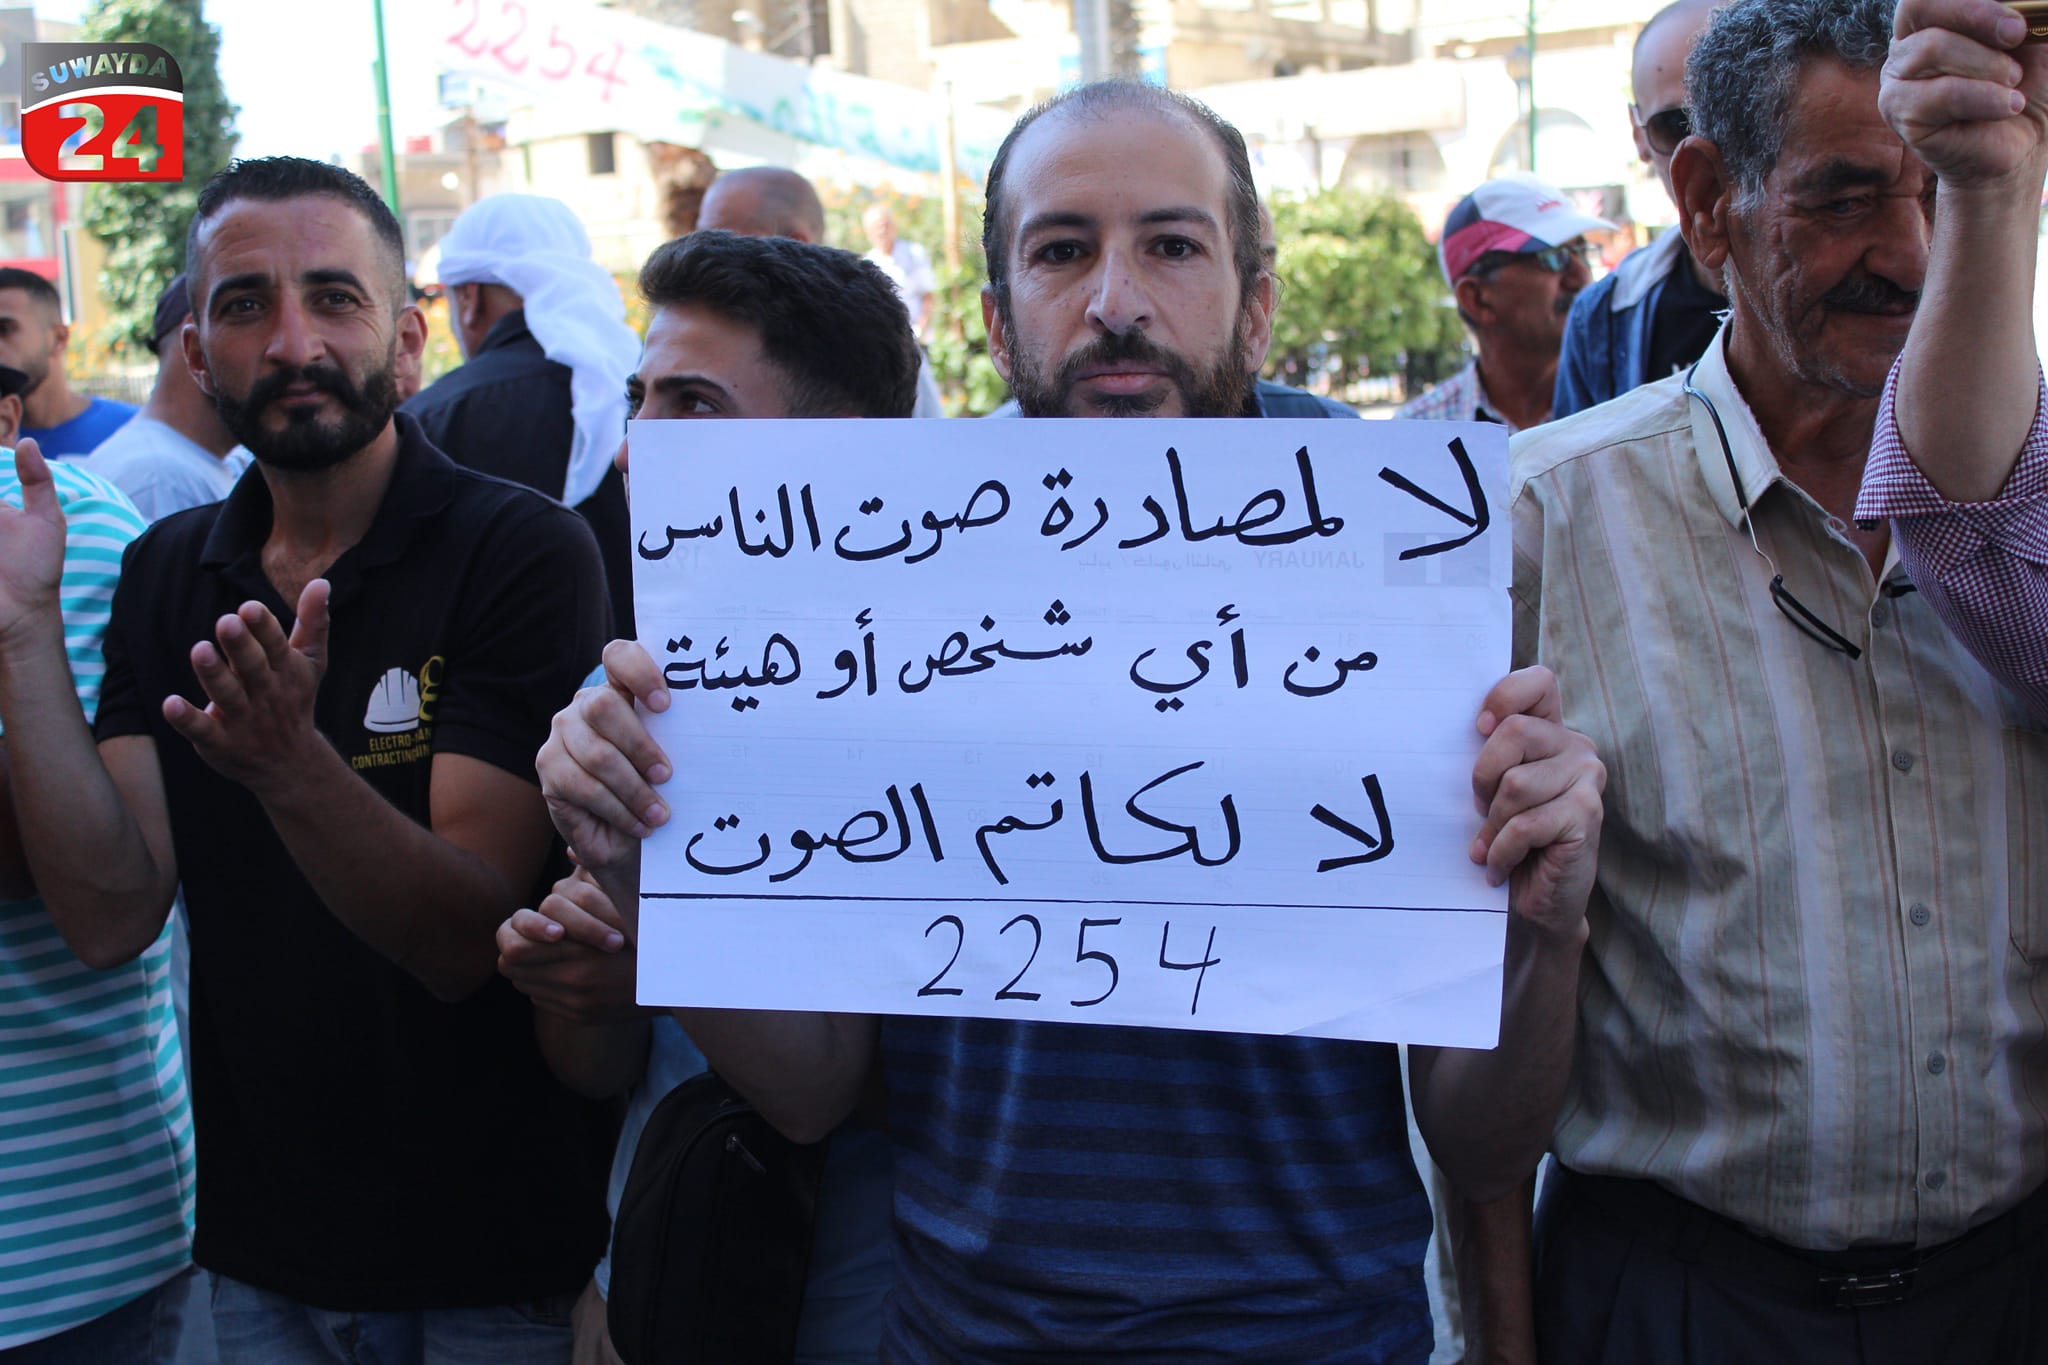 SUWAYDA
24
2254
لا لمصادرة صوت الناس
من أي شخص أو هيئة
لا لكاتم الصوت
2254
ELECTRO-
CONTRACTING